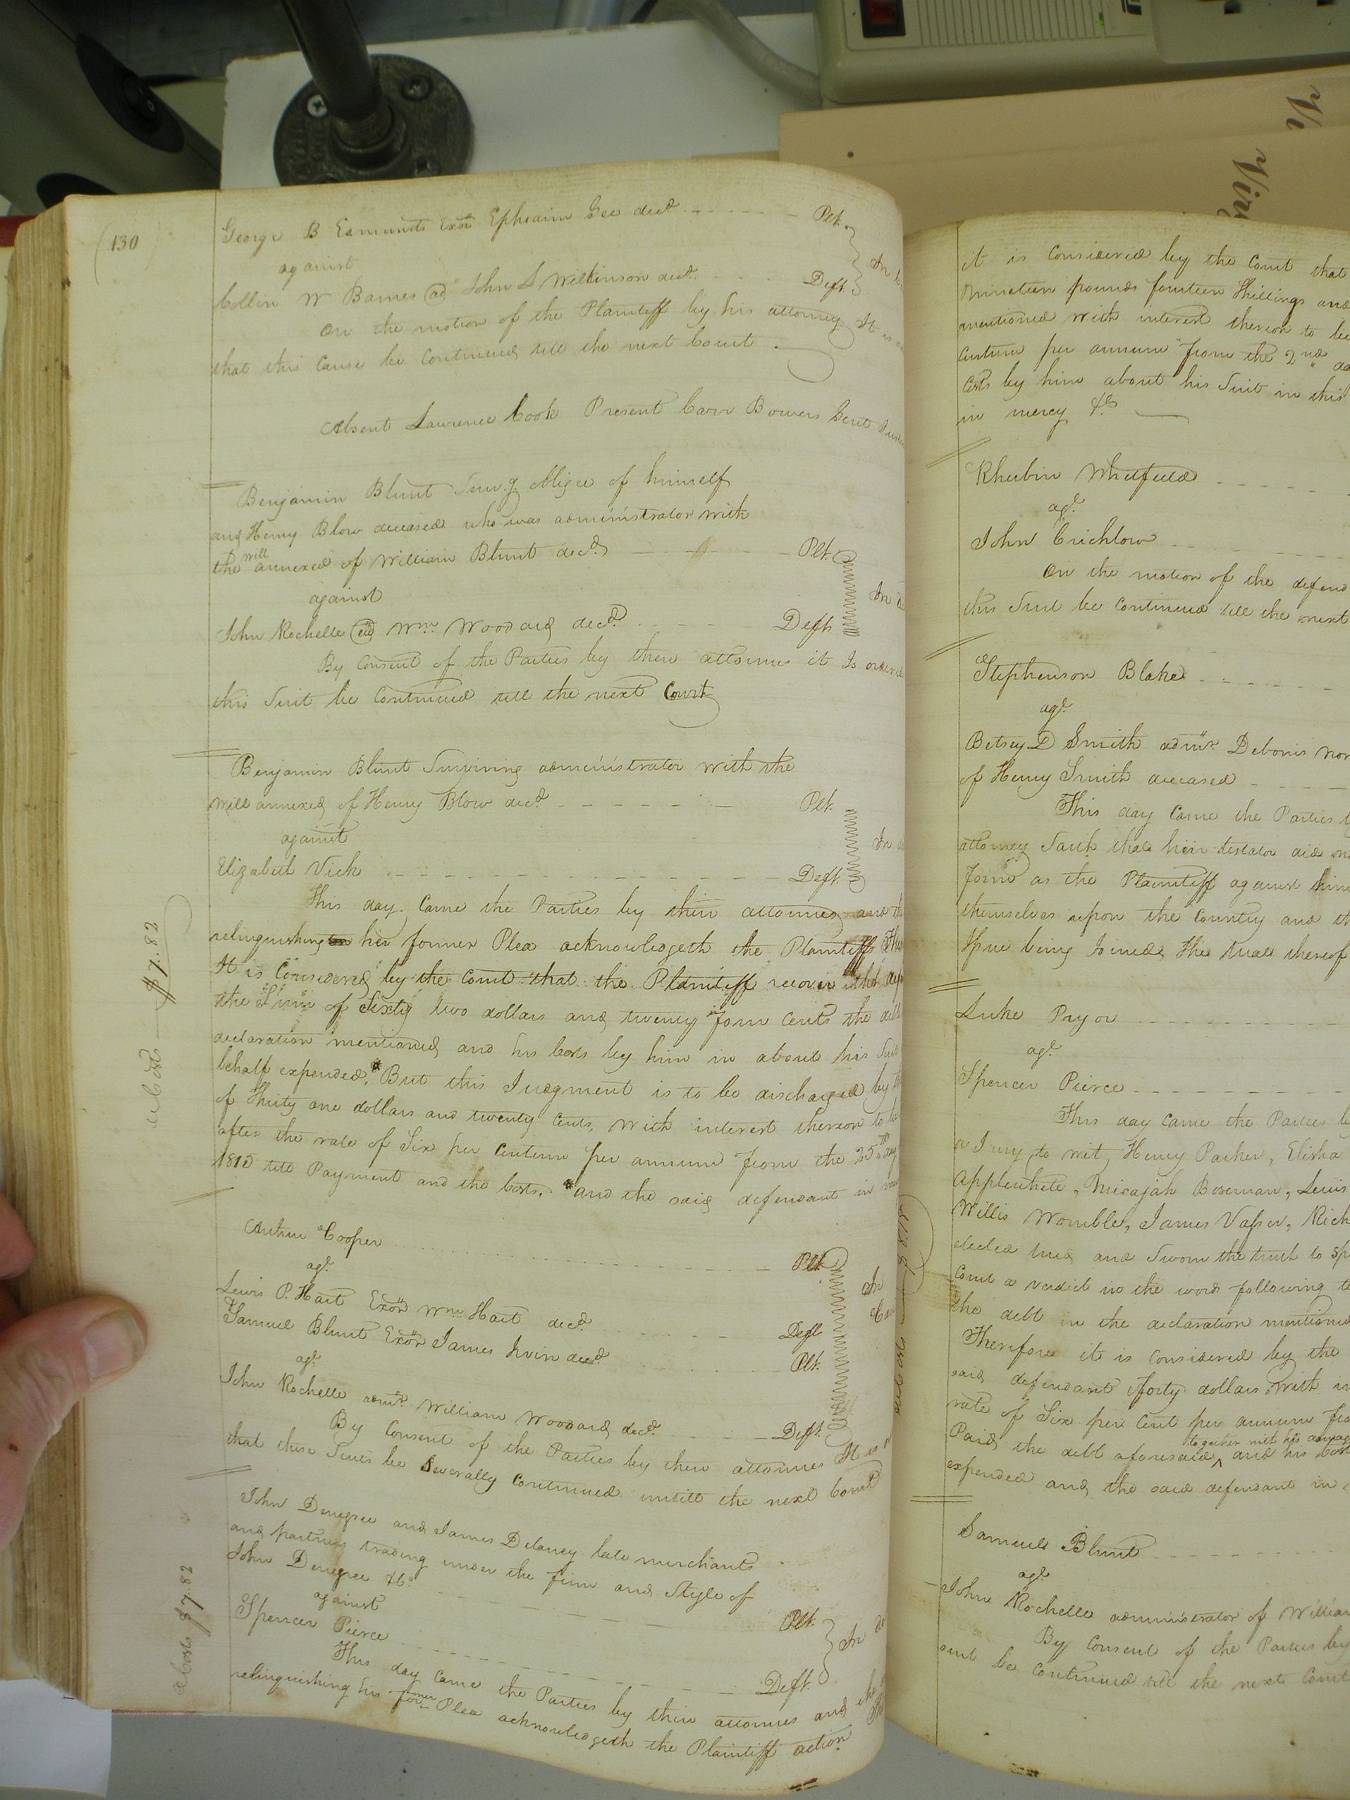 (130)
George B Edmunds Exor Ephraim Gee decd. Plt.
against
Collin W Barnes ad John S Wilkinson decd. Deft.
On the motion of the Plaintiff by his attorney It is
that this cause be continued till the next Court
Absent Lawrence Cook Present Carr Bowers Gent
Benjamin Blunt Surv.g Obligee of himself
and Henry Blow deceased who was administrator with
the will annexed of William Blunt decd. Plt.
against
John Rochelle ad Wm Woodard decd. Deft
By Consent of the Parties by their attornies it Is ordered
this Suit be Continued till the next Court
Benjamin Blunt Surviving administrator with the
will annexed of Henry Blow decd. Plt.
against
Elizabeth Vick Deft.
This day Came the Parties by their attornies and the
relinquishing her former Plea acknowledgeth the Plaintiffs
It is Considered by the Court that the Plaintiff recover
the Sum of Sixty two dollars and twenty four Cents the
declaration mentioned and his Costs by him in about his Suit
behalf expended. But this Judgment is to be discharged by
of thirty one dollars and twenty Cents, With interest thereon to be
after the rate of Six per Centum per annum from the 25th day
till Payment and the Costs. and the said defendant in
$7.82
Arthur Cooper Plt
agt.
Lewis P. Hart Exor Wm Hart decd. Deft
Samuel Blunt Exor James Irvin decd. Plt.
agt.
John Rochelle admr. William Woodard decd. Deft.
By Consent of the Parties by their attornies It is
that these Suits be Severally Continued untill the next Court
John Denegree and James Delaney late merchants
and partners trading under the firm and Style of
John Denegree &Co. Plt.
against
Spencer Pierce Deft.
This day came the Parties by their attornies and the
relinquishing his former Plea acknowledgeth the Plaintiff action
Costs $7.82
it is Considered by the Court that
nineteen pounds fourteen Shillings and
mentioned with interest thereon to be
Centum per annum from the 2nd
Costs by him about his Suit in this
in mercy &c
Rheubin Whitfield
agt.
John Crichlow
On the motion of the defend
this Suit be Continued till the next
Stephenson Blake
agt.
Betsey D Smith admr. Debonis non
of Henry Smith deceased
This day Came the Parties
attorney Saith that her testator did
form as the Plaintiff against him
themselves upon the Country and
Issue being Joined, the trial thereof
Luke Pryor
agt.
Spencer Pierce
This day Came the Parties
a Jury to wit, Henry Parker, Elisha
Applewhite, Micajah Boseman, Lewis
Willis Womble, James Vasser, Rich
elected tried and Sworn the truth to Sp
Court a verdict in the words following
the debt in the declaration mentioned
Therefore it is Considered by the
said defendant forty dollars, with in
rate of Six per Cent per annum from
Paid the debt aforesaid together with his and his Costs
expended and the said defendant in
Samuel Blunt
agt
John Rochelle administrator of William
By Consent of the Parties by
suit be continued till the next Court